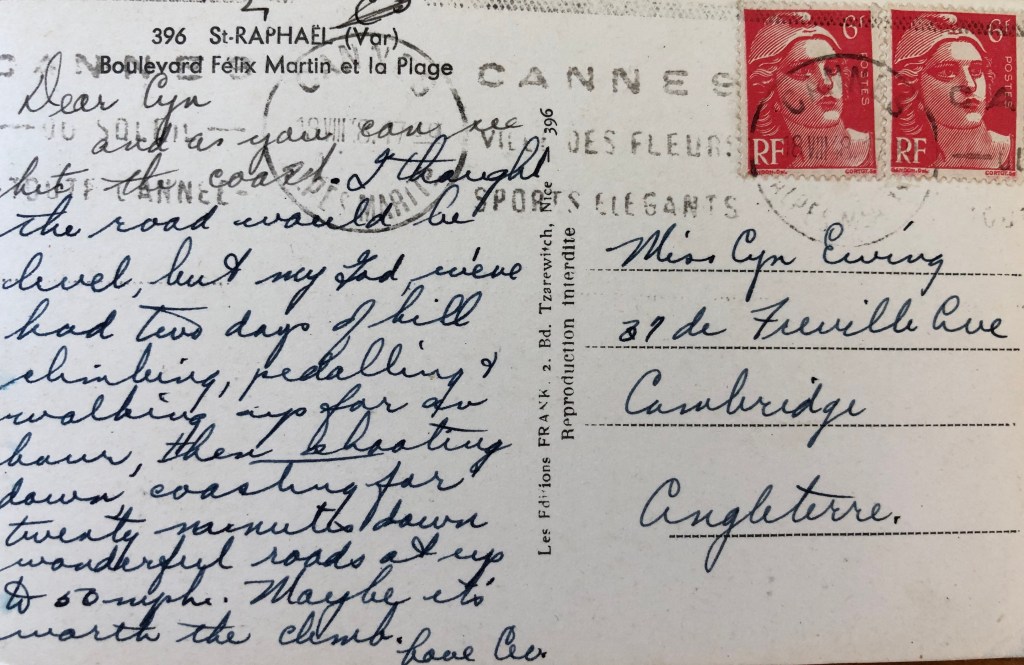 396 St-RAPHAËL (Var)
Boulevard Félix Martin et la Plage
Dear Cyn
and as you can see
hit the coast. I thought
the road would be
level, but my God, we've
had two days of hill
climbing, pedalling &
walking up for an
hour, then shooting
down, coasting for
twenty minutes down
wonderful roads at up
to 50 mph. Maybe it's
worth the climb.
Love
CANNES
DU SOLEIL
TOUTE CANNEL
CANNES
VILLE DES FLEURS
SPORTS ELEGANTS
CANNES
18 VIII
ALPES MARIT
Les Editions FRANK. 2. Bd. Tzarewitch, Nice 396
Reproduction Interdite
6F
POSTES
RF
6F
POSTES
RF
CANNES
18 VIII
Miss Cyn Ewing
37 de Freville Ave
Cambridge
Angleterre.